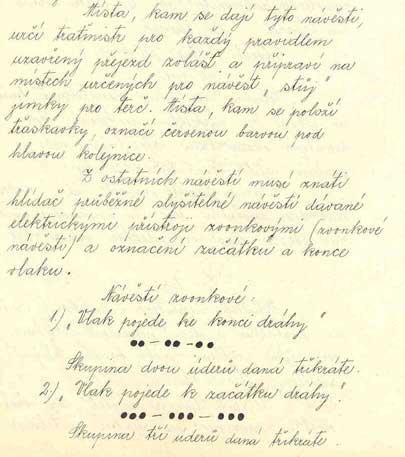 Místa, kam se dají tyto návěsti,
určí tratmistr pro každý pravidlem
uzavřený přejezd zvlášť a připraví na
místech určených pro návěst „stůj"
jímky pro terč. Místa, kam se položí
třaskavky, označí červenou barvou pod
hlavou kolejnice.
Z ostatních návěstí musí znáti
hlídač průběžné slyšitelné návěsti dávané
elektrickými přístroji zvonkovými (zvonkové
návěsti) a označení začátků a konce
vlaku.
Návěstí zvonkové:
1) „Vlak pojede ke konci dráhy"
●● — ●● — ●●
Skupina dvou úderů daná třikráte.
2.) „Vlak pojede k začátku dráhy".
●●● — ●●● — ●●●
Skupina tří úderů daná třikráte.